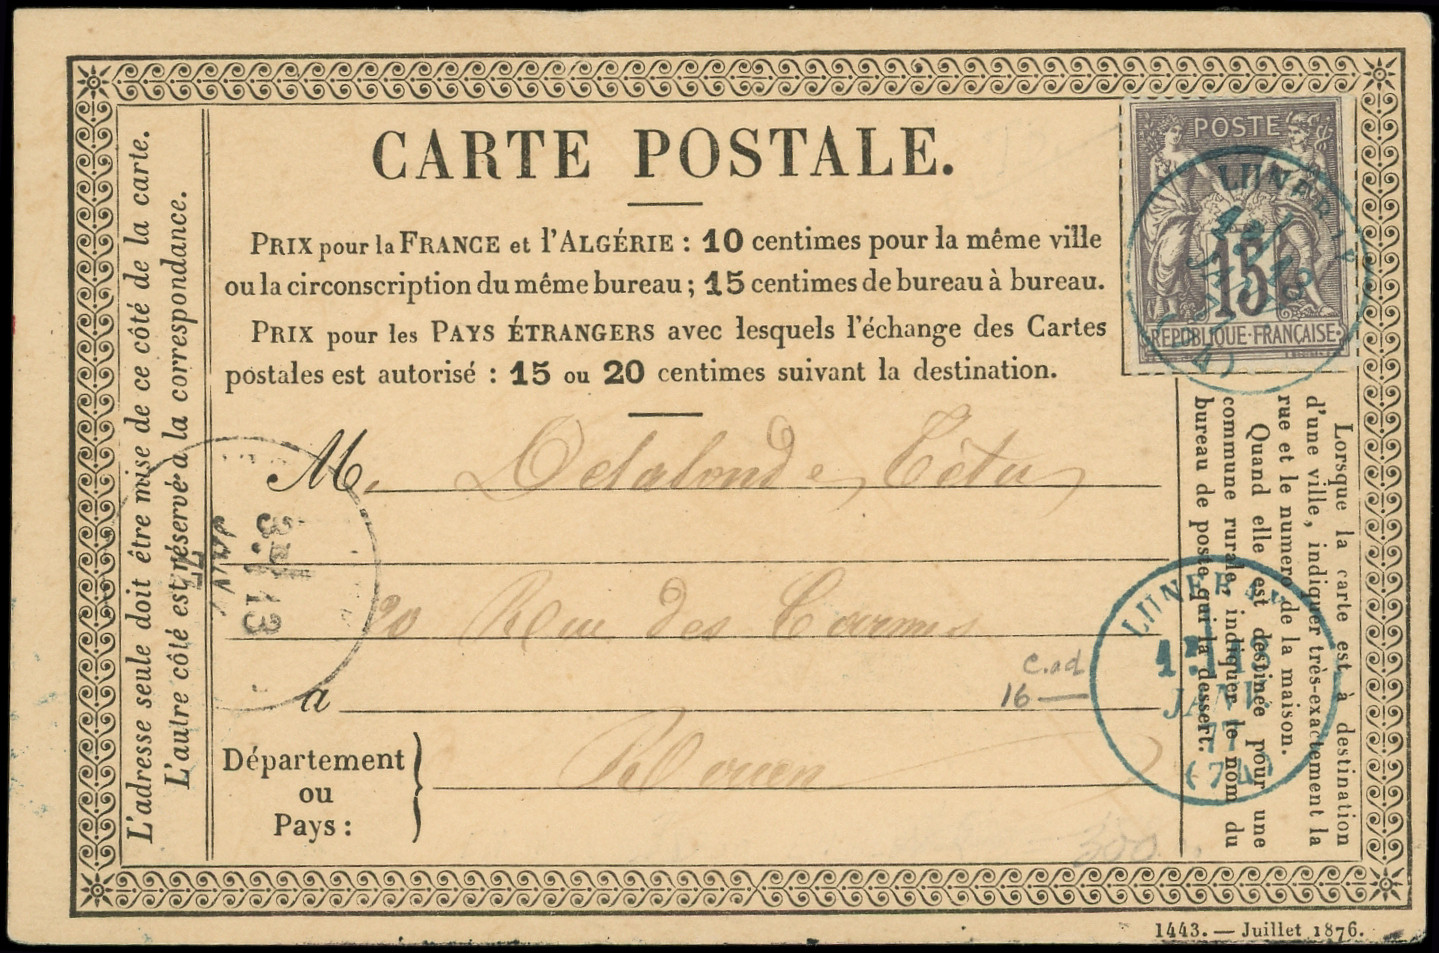 CARTE POSTALE.
PRIX pour la FRANCE et l'ALGÉRIE : 10 centimes pour la même ville
ou la circonscription du même bureau ; 15 centimes de bureau à bureau.
PRIX pour les PAYS ÉTRANGERS avec lesquels l'échange des Cartes
postales est autorisé : 15 ou 20 centimes suivant la destination.
POSTE
15
REPUBLIQUE · FRANÇAISE
L'adresse seule doit être mise de ce côté de la carte.
L'autre côté est réservé à la correspondance.
M. Delalonde Têtu
20 Rue des Carmes
à
Rouen
Département
ou
Pays :
Lorsque la carte est à destination
d'une ville, indiquer très-exactement la
rue et le numéro de la maison.
Quand elle est destinée pour une
commune rurale, indiquer le nom du
bureau de poste qui la dessert.
LUNERAY
JANV.
(74)
JANV
13
c.ad
16
300
1443. — Juillet 1876.